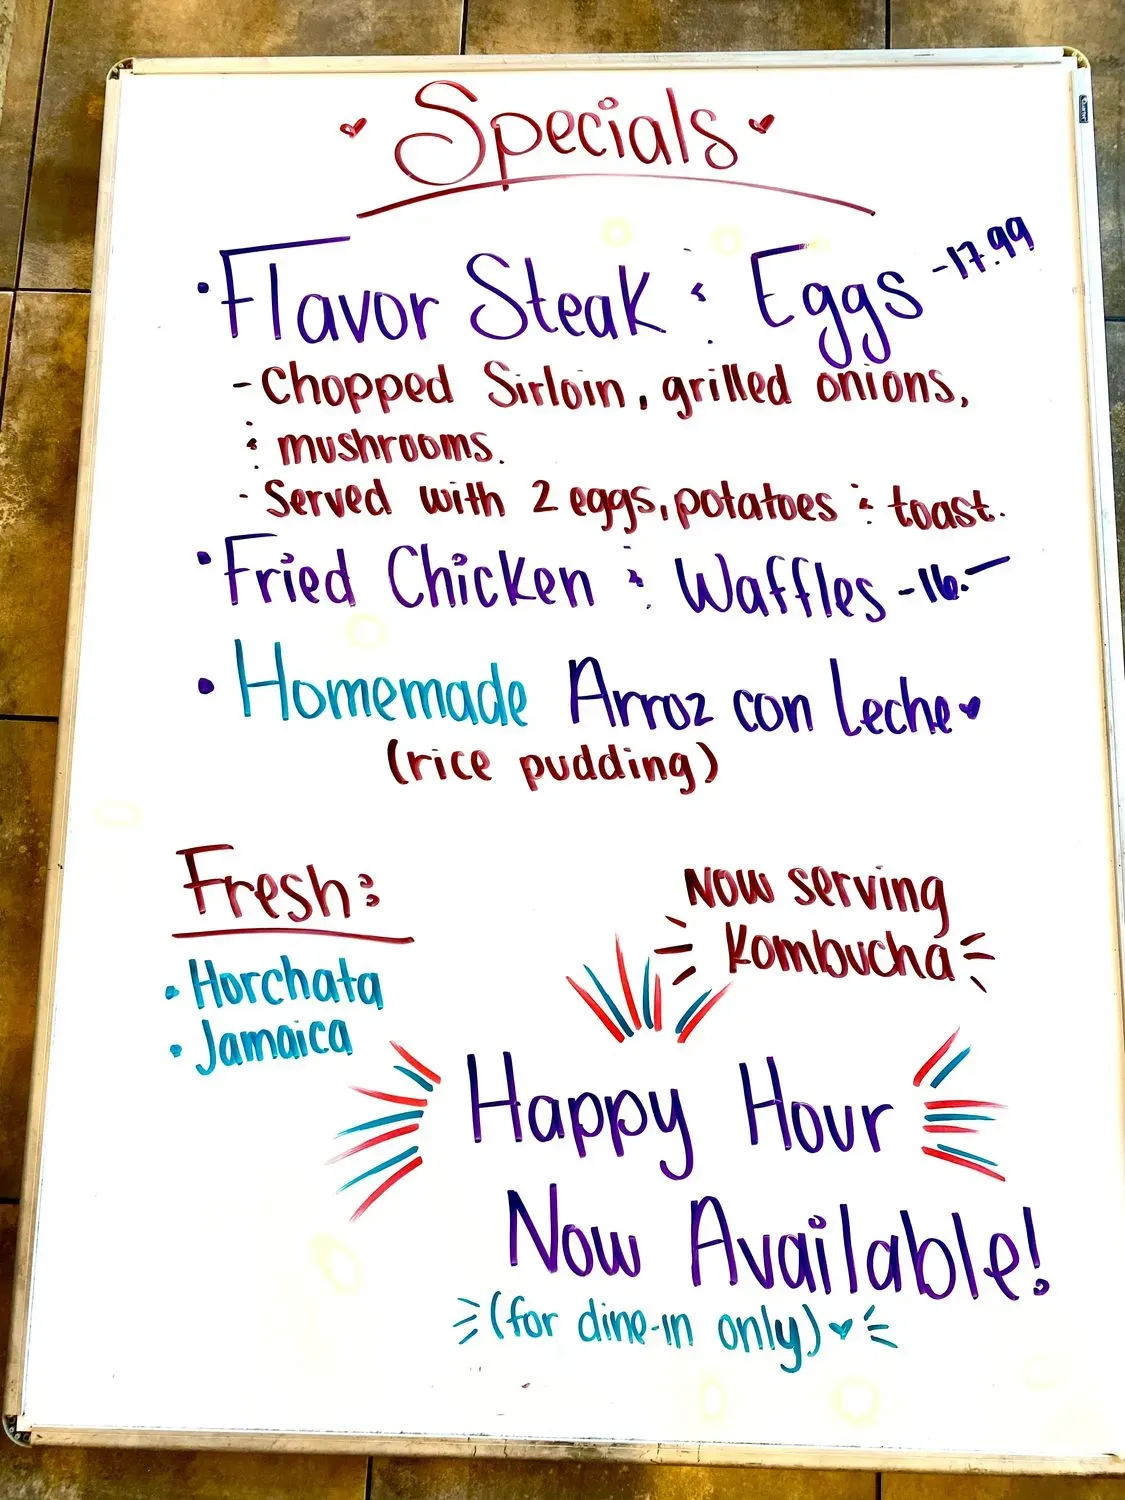 Specials
• Flavor Steak & Eggs -17.99
- Chopped Sirloin, grilled onions,
& mushrooms.
- Served with 2 eggs, potatoes & toast.
• Fried Chicken & Waffles -16.-
• Homemade Arroz con Leche
(rice pudding)
Fresh:
• Horchata
• Jamaica
Now serving
Kombucha
Happy Hour
Now Available!
(for dine-in only)